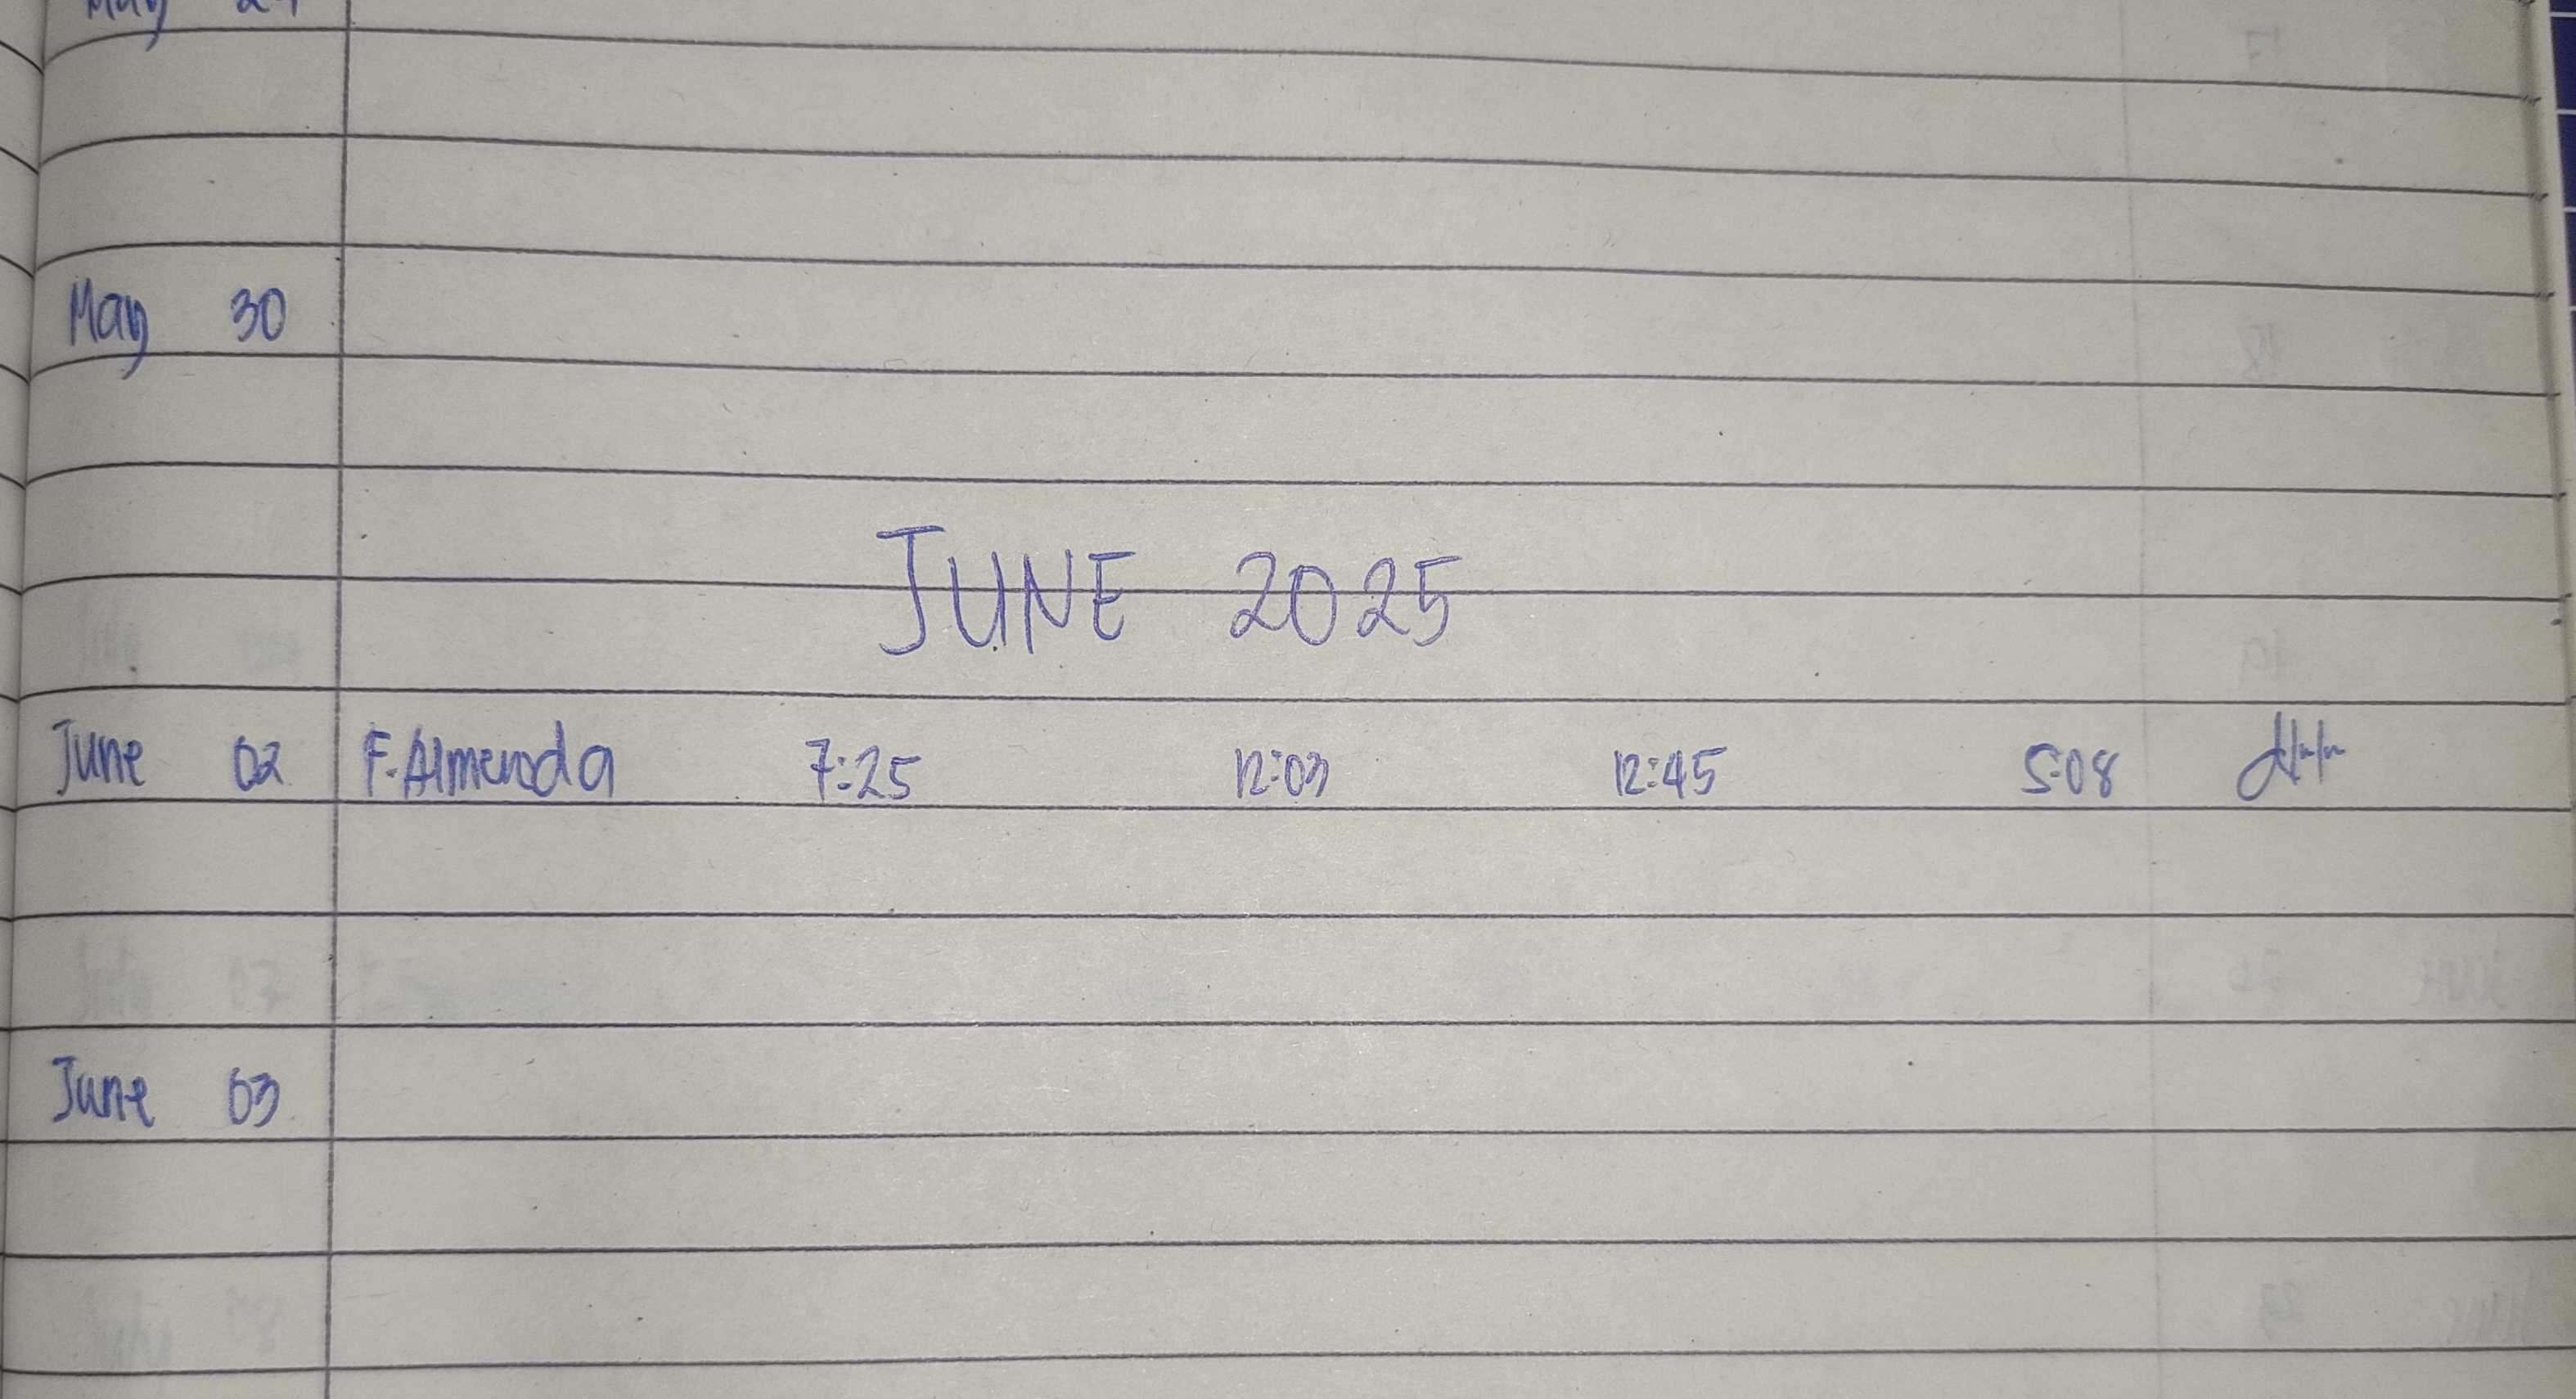 May 30
JUNE 2025
June 02 F. Almeroda 7:25 12:03 12:45 5:08
June 03